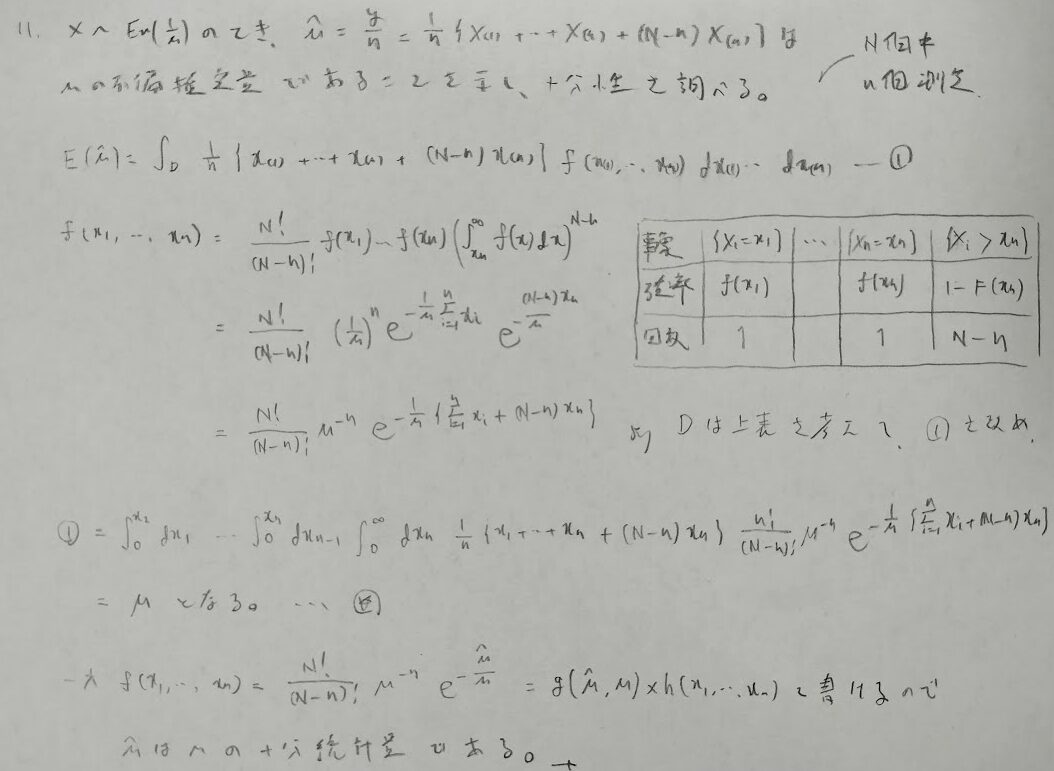 11. X ~ En(1/μ) のとき、 μ̂ = y/n = 1/n {X(1) + ‥ + X(n) + (N-n) X(n)} は
μ の不偏推定量 であることを示し、十分性を調べる。
N個中
n個測定
E(μ̂) = ∫_D 1/n {x(1) + ‥ + x(n) + (N-n) x(n)} f(x(1), ‥, x(n)) dx(1) ‥ dx(n) — ①
f(x1, ‥, xn) = N!/(N-n)! f(x1) ‥ f(xn) (∫_{xn}^{∞} f(x)dx)^{N-n}
= N!/(N-n)! (1/μ)^n e^{-1/μ Σ_{i=1}^{n} xi} e^{-(N-n)xn/μ}
事象 {X1=x1} ‥ {Xn=xn} {Xi > xn}
確率 f(x1) f(xn) 1-F(xn)
回数 1 1 N-n
= N!/(N-n)! μ^{-n} e^{-1/μ {Σ_{i=1}^{n} xi + (N-n)xn}} より D は上表を考えて、① を改め、
① = ∫_0^{x2} dx1 ‥ ∫_0^{xn} dx_{n-1} ∫_0^{∞} dxn 1/n {x1 + ‥ + xn + (N-n) xn} n!/(N-n)! μ^{-n} e^{-1/μ {Σ_{i=1}^{n} xi + (N-n)xn}}
= μ となる。 …
一方 f(x1, ‥, xn) = N!/(N-n)! μ^{-n} e^{-μ̂/μ} = g(μ̂, μ) × h(x1, ‥, xn) と書けるので
μ̂ は μ の十分統計量である。